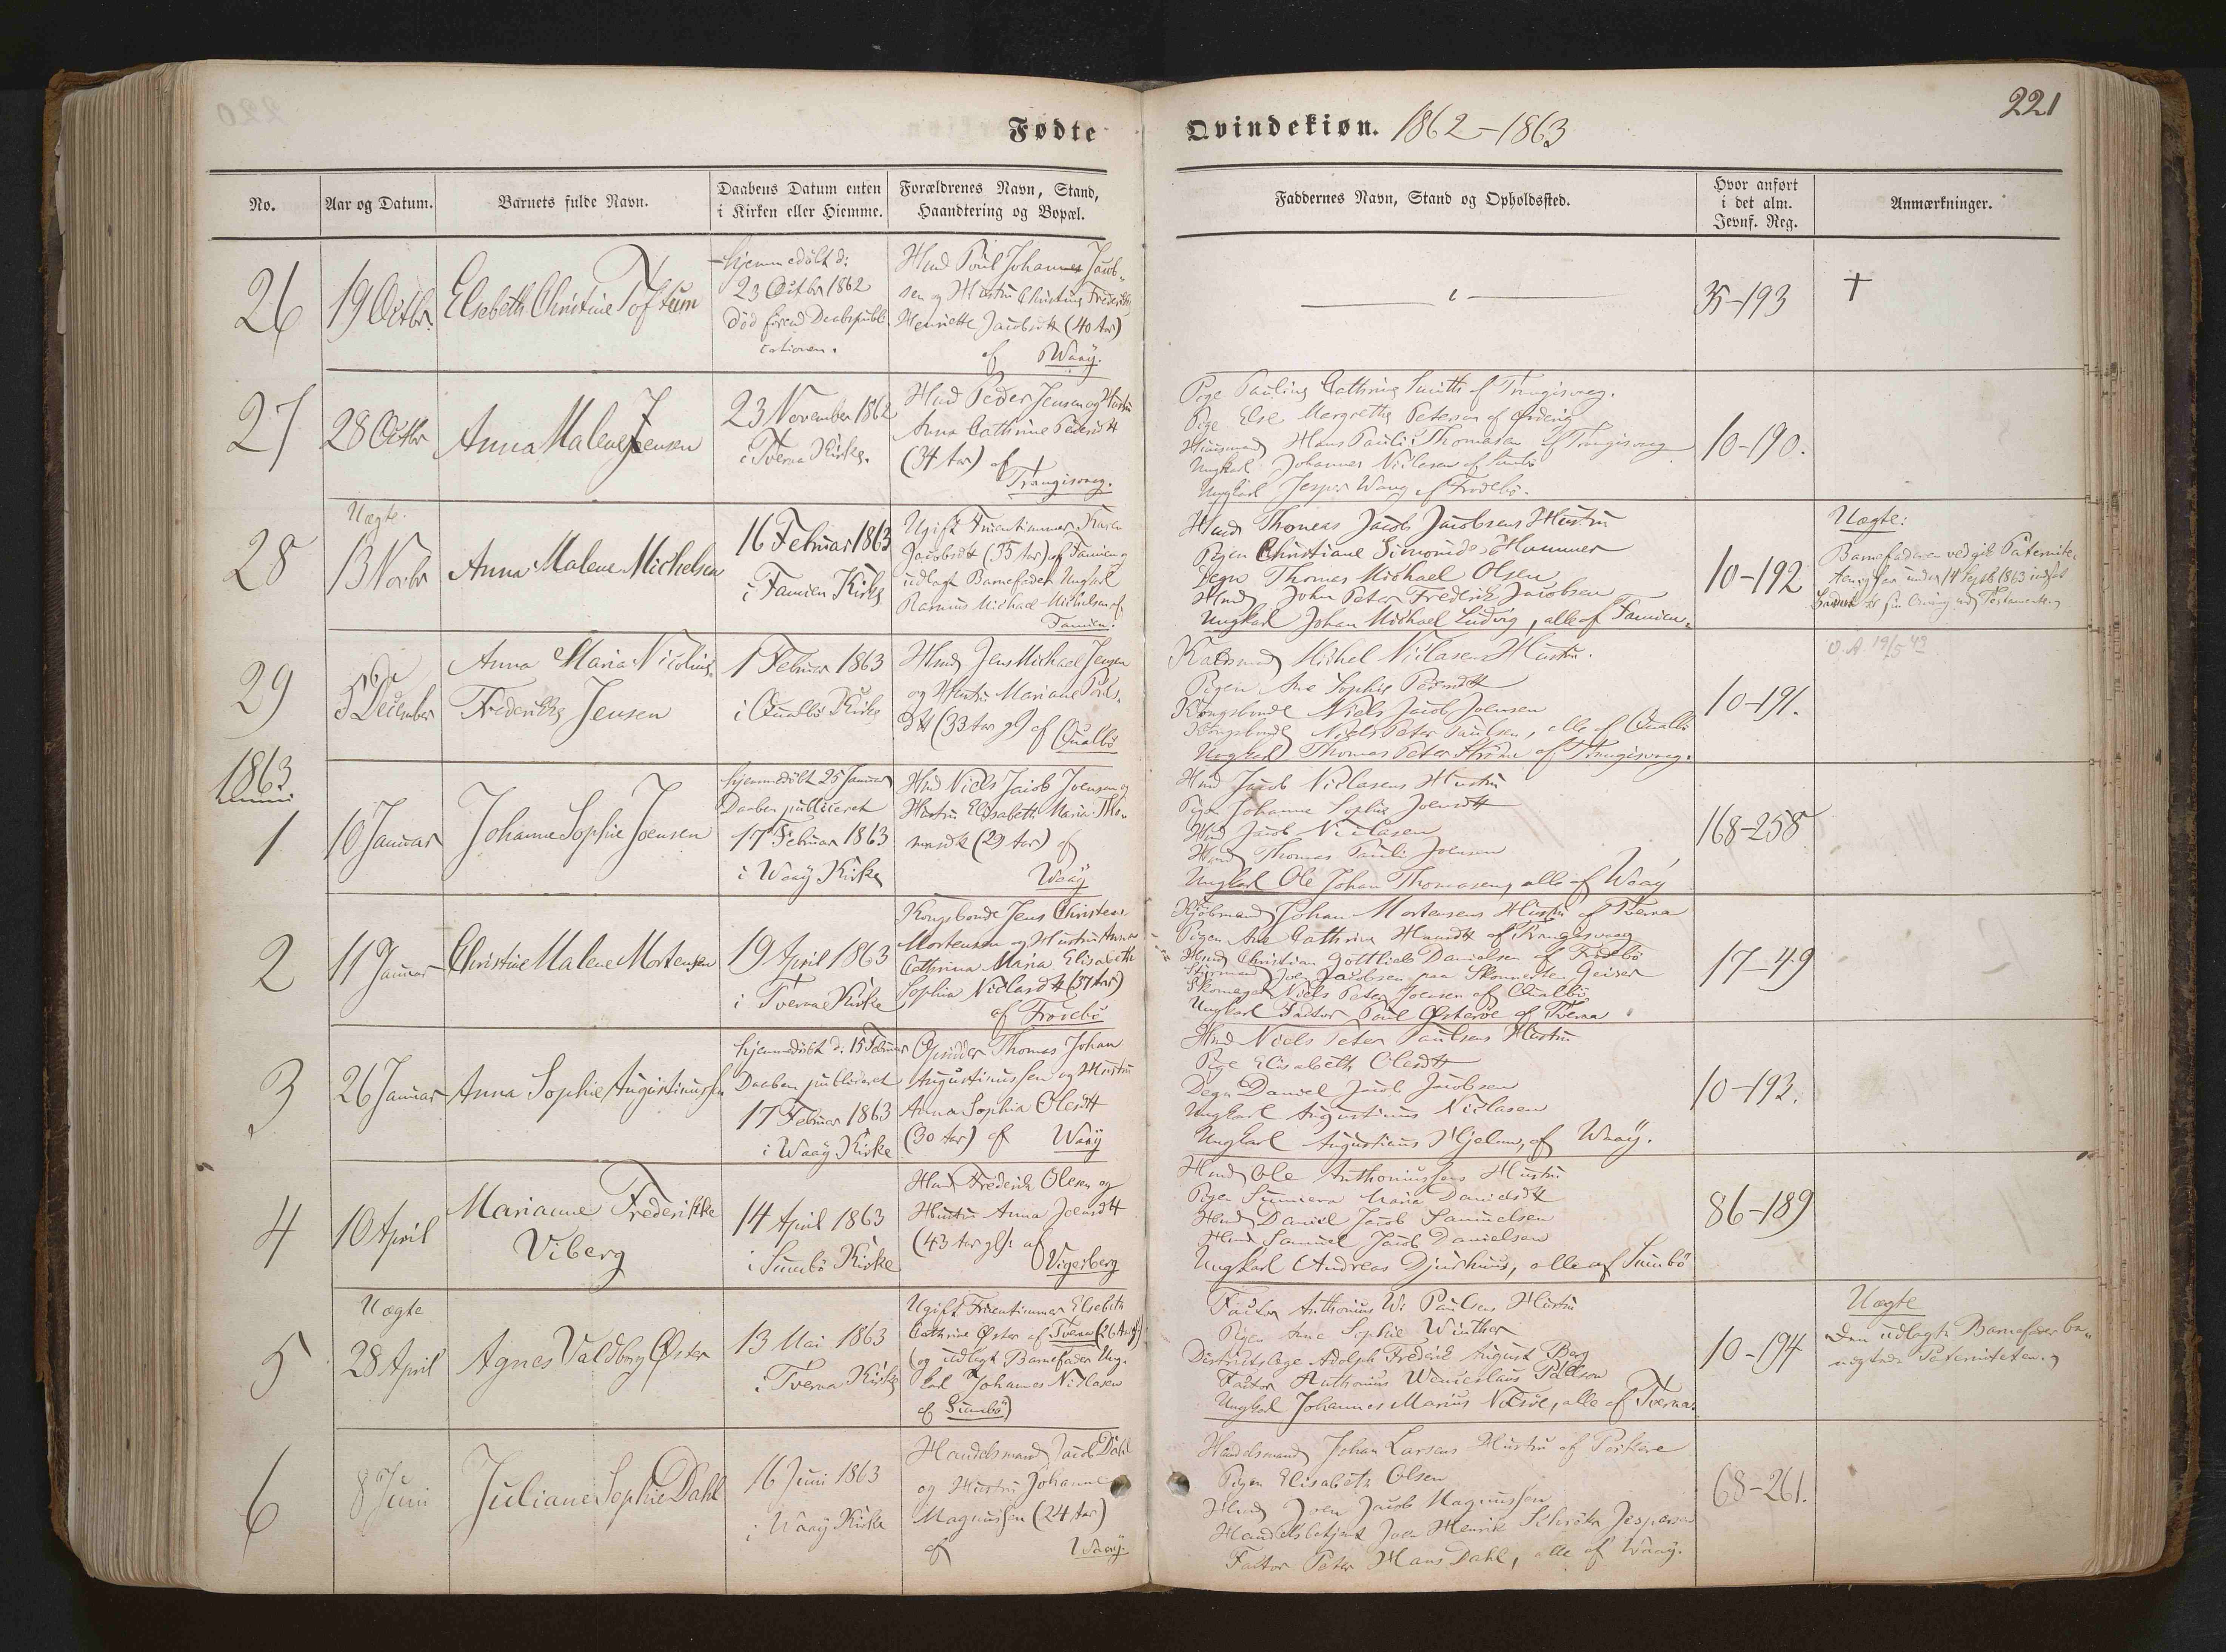 Fødte
Qvindekiøn. 1862-1863
221
No.
Aar og Datum.
Barnets fulde Navn.
Daabens Datum enten
i Kirken eller Hiemme.
Forældrenes Navn, Stand,
Haandtering og Bopæl.
Faddernes Navn, Stand og Opholdssted.
Hvor anført
i det alm.
Jevnf. Reg.
Anmærkninger.
26
19 Octbr.
Elsebeth Christine Toftum
Hjemmedøbt d:
23 Octbr 1862
død forend Daabspubli-
cationen.
Hmd Poul Johannes Jacob-
sen og Hustru Christine Frederikke
Henriette Jacobsdtt (40 Aar)
af Waaÿ.
35-193
+
27
28 Octbr
Anna Malene Jensen
23 November 1862
i Tveraa Kirke.
Hmd Peder Jensen og Hustru
Anna Cathrine Pedersdtt
(34 Aar) af
Trangisvaag.
Pige Pauline Cathrine Smith af Trangisvaag.
Pige Else Margrethe Petersen af Ørdevig
Huusmand Hans Pauli Thomasen af Trangisvaag
Ungkarl Johannes Niclasen af Sumbø
Ungkarl Jesper Wang af Frodebø.
10-190.
28
Uægte.
13 Novbr
Anna Malene Michelsen
16 Februar 1863
i Famien Kirke
Ugift Fruentimmer Karen
Jacobsdtt (35 Aar) af Famien og
udlagt Barnefader Ungkarl
Rasmus Michael Michelsen af
Famien.
Hmds Thomas Jacob Jacobsens Hustru
Pigen Christiane Simonide Hammer
Degn Thomas Michael Olsen
Hmd John Peter Frederik Jacobsen
Ungkarl Johan Michael Ludvig, alle af Famien.
10-192
Uægte:
Barnefaderen vedgik Paternite-
ten, og har under 14 Septb 1863 indsat
Barnet til sin Arving ved Testamente.
29
5 December
Anna Maria Nicoline
Frederikke Jensen
1 Februar 1863
i Qualbø Kirke
Hmd Jens Michael Jensen
og Hustru Mariane Pouls-
dtt (33 Aar gl) af Qualbø
Kaldsmd Michel Niclasens Hustru.
Pigen Ane Sophie Pedersdtt
Kongsbonde Niels Jacob Joensen
Kongsbonde Niels Peter Paulsen, alle af Qualbø
Ungkarl Thomas Peter Strøm af Trangisvaag.
10-191.
V. A. 19/5 49
1863
1
10 Januar
Johanne Sophie Joensen
Hjemmedøbt 25 Januar
Daaben publiceret
17 Februar 1863
i Waaÿ Kirke
Hmd Niels Jacob Joensen og
Hustru Elisabeth Maria Tho-
masdtt (29 Aar) af
Waaÿ
Hmd Jacob Niclasens Hustru
Pige Johanne Sophie Joensdtt
Hmd Jacob Niclasen
Hmd Thomas Pauli Joensen
Ungkarl Ole Johan Thomasen, alle af Waaÿ
168-258
2
11 Januar
Christine Malene Mortensen
19 April 1863
i Tveraa Kirke
Kongsbonde Jens Christian
Mortensen og Hustru Anna
Cathrina Maria Elisabeth
Sophia Niclasdtt (37 Aar)
af Frodebø
Kjøbmand Johan Mortensens Hustru af Tveraa
Pigen Ane Cathrine Hansdtt af Trangisvaag
Hmd Christian Gottlieb Danielsen af Frodebø
Styrmand Joen Jacobsen paa Skonnerten Geiser
Skomager Niels Peter Joensen af Qualbø
Ungkarl Factor Poul Østerøe af Tveraa
17-49
3
26 Januar
Anna Sophie Augustinussen
Hjemmedøbt d. 15 Februar
Daaben publiceret
17 Februar 1863
i Waaÿ Kirke
Opsidder Thomas Johan
Augustinussen og Hustru
Anna Sophia Olesdtt
(30 Aar) af Waaÿ
Hmd Niels Peter Paulsens Hustru
Pige Elisabeth Olesdtt
Degn Daniel Jacob Jacobsen
Ungkarl Augustinus Niclasen
Ungkarl Augustinus Hjelm, af Waaÿ.
10-193.
4
10 April
Marianne Frederikke
Viberg
14 April 1863
i Sumbø Kirke
Hmd Frederik Olesen og
Hustru Anna Joensdtt
(43 Aar gl) af
Vigerberg
Hmd Ole Anthoniussens Hustru
Pigen Sunneva Maria Danielsdtt
Hmd Daniel Jacob Samuelsen
Hmd Samuel Jacob Danielsen
Ungkarl Andreas Djurhuus, alle af Sumbø
86-189
5
Uægte
28 April
Agnes Valdborg Øster
13 Mai 1863
i Tveraa Kirke
Ugift Fruentimmer Elsebeth
Cathrine Øster af Tveraa (26 Aar)
(og udlagt Barnefader Ung-
karl Johannes Niclasen
af Sumbø)
Factor Anthonius W. Paulsens Hustru
Pigen Ane Sophie Winther
Districtslæge Adolph Frederik August Berg
Factor Anthonius Wenceslaus Poulsen
Ungkarl Johannes Marius Nolsøe, alle af Tveraa.
10-194
Uægte
Den udlagte Barnefader be-
nægtede Paterniteten.
6
8 Juni
Juliane Sophie Dahl
16 Juni 1863
i Waaÿ Kirke
Handelsmand Jacob Dahl
og Hustru Johanne
Magnussen (24 Aar)
af Waaÿ.
Handelsmand Johan Larsens Hustru af Porkere
Pigen Elisabeth Olsen
Hmd Joen Jacob Magnussen
Handelsbetjent Joen Henrik Schrøter Jespersen
Factor Peter Hans Dahl, alle af Waaÿ.
68-261.